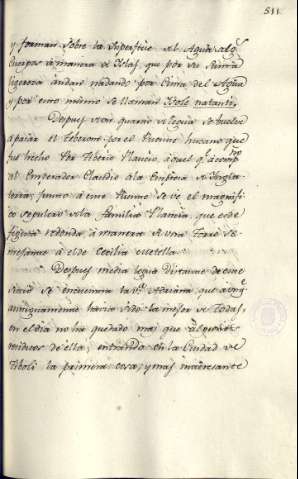 511.
y forman sobre la superficie del Agua alg.ˢ
cuerpos à manera de Islas, que por su suma
ligereza andan nadando por cima del Agua
y por esto mismo se llaman Isole natanti.
Despues de un quarto de legua se buelve
a pasar el Teberone por el Puente lucano que
fue hecho Por Tiberio Plaucio, àquel q.ᵉ acomp.ⁿᵒ
al Emperador Claudio ala Empresa de Yngla-
terra; junto à este Puente se vè el magnifi-
co sepulcro dela familia Plaucia, que es de
figura redonda à manera de una Torre se-
mejante à el de Cecilia Metella.
Despues media legua distante de este
se encuentra la v.ᵃ Adriana, que aunq.ᵉ
antiguamente havia sido la mejor de Todas,
en el dia no ha quedado mas que algunos
residuos de ella; entrando en la Ciudad de
Tiboli la primera cosa, y mas interesante